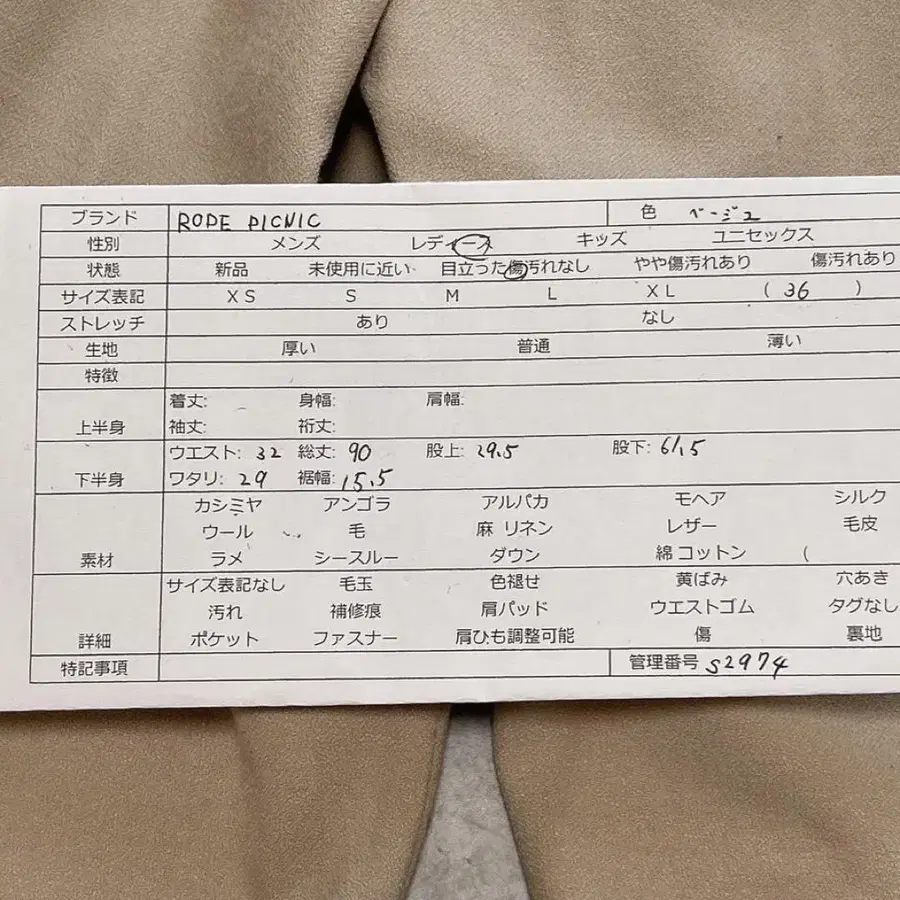 ブランド ROPE PICNIC 色 ベージュ
性別 メンズ レディース キッズ ユニセックス
状態 新品 未使用に近い 目立った傷汚れなし やや傷汚れあり 傷汚れあり
サイズ表記 XS S M L XL ( 36 )
ストレッチ あり なし
生地 厚い 普通 薄い
特徴
着丈: 身幅: 肩幅:
上半身 袖丈: 裄丈:
ウエスト: 32 総丈: 90 股上: 29.5 股下: 61.5
下半身 ワタリ: 29 裾幅: 15.5
カシミヤ アンゴラ アルパカ モヘア シルク
ウール 毛 麻 リネン レザー 毛皮
素材 ラメ シースルー ダウン 綿 コットン (
サイズ表記なし 毛玉 色褪せ 黄ばみ 穴あき
汚れ 補修痕 肩パッド ウエストゴム タグなし
詳細 ポケット ファスナー 肩ひも調整可能 傷 裏地
特記事項 管理番号 S2974